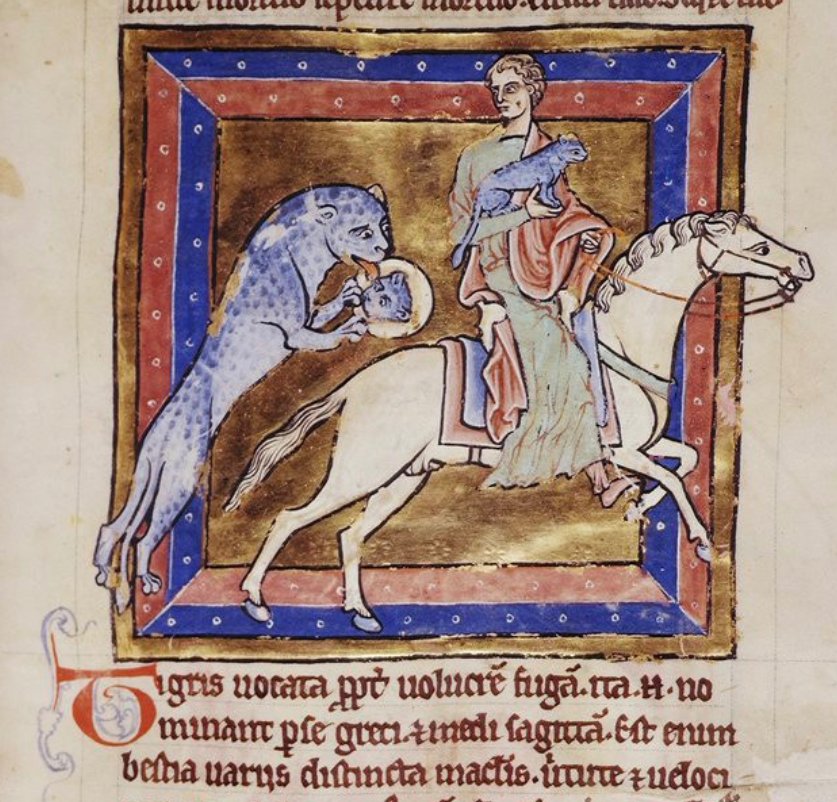 Tigris uocata ppt̄ uolucrē fugā. ita .n. no
minant pse greci. ⁊ medi sagittā. Est enim
bestia uarijs distincta maclis. uirtute ⁊ ueloci-